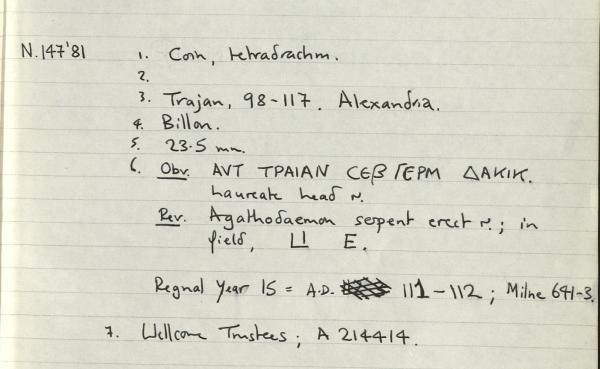 N.147'81
1. Coin, tetradrachm.
2.
3. Trajan, 98-117. Alexandria.
4. Billon.
5. 23.5 mm.
6. Obv. ΑVΤ ΤΡΑΙΑΝ CΕβ ΓΕΡΜ ΔΑΚΙΚ.
Laureate head r.
Rev. Agathodaemon serpent erect r.; in
field, LI E.
Regnal Year 15 = A.D. 111-112; Milne 641-3.
7. Wellcome Trustees; A 214414.